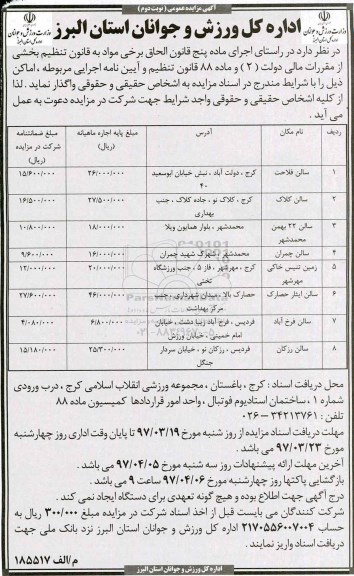 آگهی مزایده عمومی (نوبت دوم)
وزارت ورزش و جوانان
اداره کل ورزش و جوانان استان البرز
در نظر دارد در راستای اجرای ماده پنج قانون الحاق برخی مواد به قانون تنظیم بخشی
از مقررات مالی دولت (۲) و ماده ۸۸ قانون تنظیم و آیین نامه اجرایی مربوطه، اماکن
ذیل را با شرایط مندرج در اسناد مزایده به اشخاص حقیقی و حقوقی واگذار نماید. لذا
از کلیه اشخاص حقیقی و حقوقی واجد شرایط جهت شرکت در مزایده دعوت به عمل
می آید.
ردیف نام مکان آدرس مبلغ پایه اجاره ماهیانه (ریال) مبلغ ضمانتنامه شرکت در مزایده (ریال)
۱ سالن فلاحت کرج، دولت آباد، نبش خیابان ابوسعید ۴۰ ۲۶/۰۰۰/۰۰۰ ۱۵/۶۰۰/۰۰۰
۲ سالن کلاک کرج، کلاک نو، جاده کلاک، جنب بهداری ۲۷/۵۰۰/۰۰۰ ۱۶/۵۰۰/۰۰۰
۳ سالن ۲۲ بهمن محمدشهر محمدشهر، بلوار همایون ویلا ۱۸/۰۰۰/۰۰۰ ۱۰/۸۰۰/۰۰۰
۴ سالن چمران محمدشهر، شهرک شهید چمران ۱۶/۰۰۰/۰۰۰ ۹/۶۰۰/۰۰۰
۵ زمین تنیس خاکی مهرشهر کرج، مهرشهر، فاز ۵، جنب ورزشگاه تختی ۲۰/۰۰۰/۰۰۰ ۱۲/۰۰۰/۰۰۰
۶ سالن ایثار حصارک حصارک بالا، میدان شهرداری، جنب مرکز بهداشت ۴۶/۰۰۰/۰۰۰ ۲۷/۶۰۰/۰۰۰
۷ سالن فرخ آباد فردیس، فرخ آباد زیبا دشت، خیابان امام خمینی، خیابان ورزش ۶/۸۰۰/۰۰۰ ۴/۰۸۰/۰۰۰
۸ سالن رزکان فردیس، رزکان نو، خیابان سردار جنگل ۲۵/۳۰۰/۰۰۰ ۱۵/۱۸۰/۰۰۰
محل دریافت اسناد: کرج، باغستان، مجموعه ورزشی انقلاب اسلامی کرج، درب ورودی
شماره ۱، ساختمان استادیوم فوتبال، واحد امور قراردادها کمیسیون ماده ۸۸
تلفن: ۳۴۲۱۳۷۶۱-۰۲۶
مهلت دریافت اسناد مزایده از روز شنبه مورخ ۹۷/۰۳/۱۹ تا پایان وقت اداری روز چهارشنبه
مورخ ۹۷/۰۳/۲۳ می باشد.
آخرین مهلت ارائه پیشنهادات روز سه شنبه مورخ ۹۷/۰۴/۰۵ می باشد.
بازگشایی پاکتها روز چهارشنبه مورخ ۹۷/۰۴/۰۶ ساعت ۹ می باشد.
درج آگهی جهت اطلاع بوده و هیچ گونه تعهدی برای دستگاه ایجاد نمی کند.
شرکت کنندگان می بایست قبل از اخذ اسناد شرکت در مزایده مبلغ ۳۰۰/۰۰۰ ریال به
حساب ۲۱۷۰۵۵۶۰۰۷۰۰۴ اداره کل ورزش و جوانان استان البرز نزد بانک ملی جهت
دریافت اسناد واریز نمایند.
م/الف ۱۸۵۵۱۷
اداره کل ورزش و جوانان استان البرز